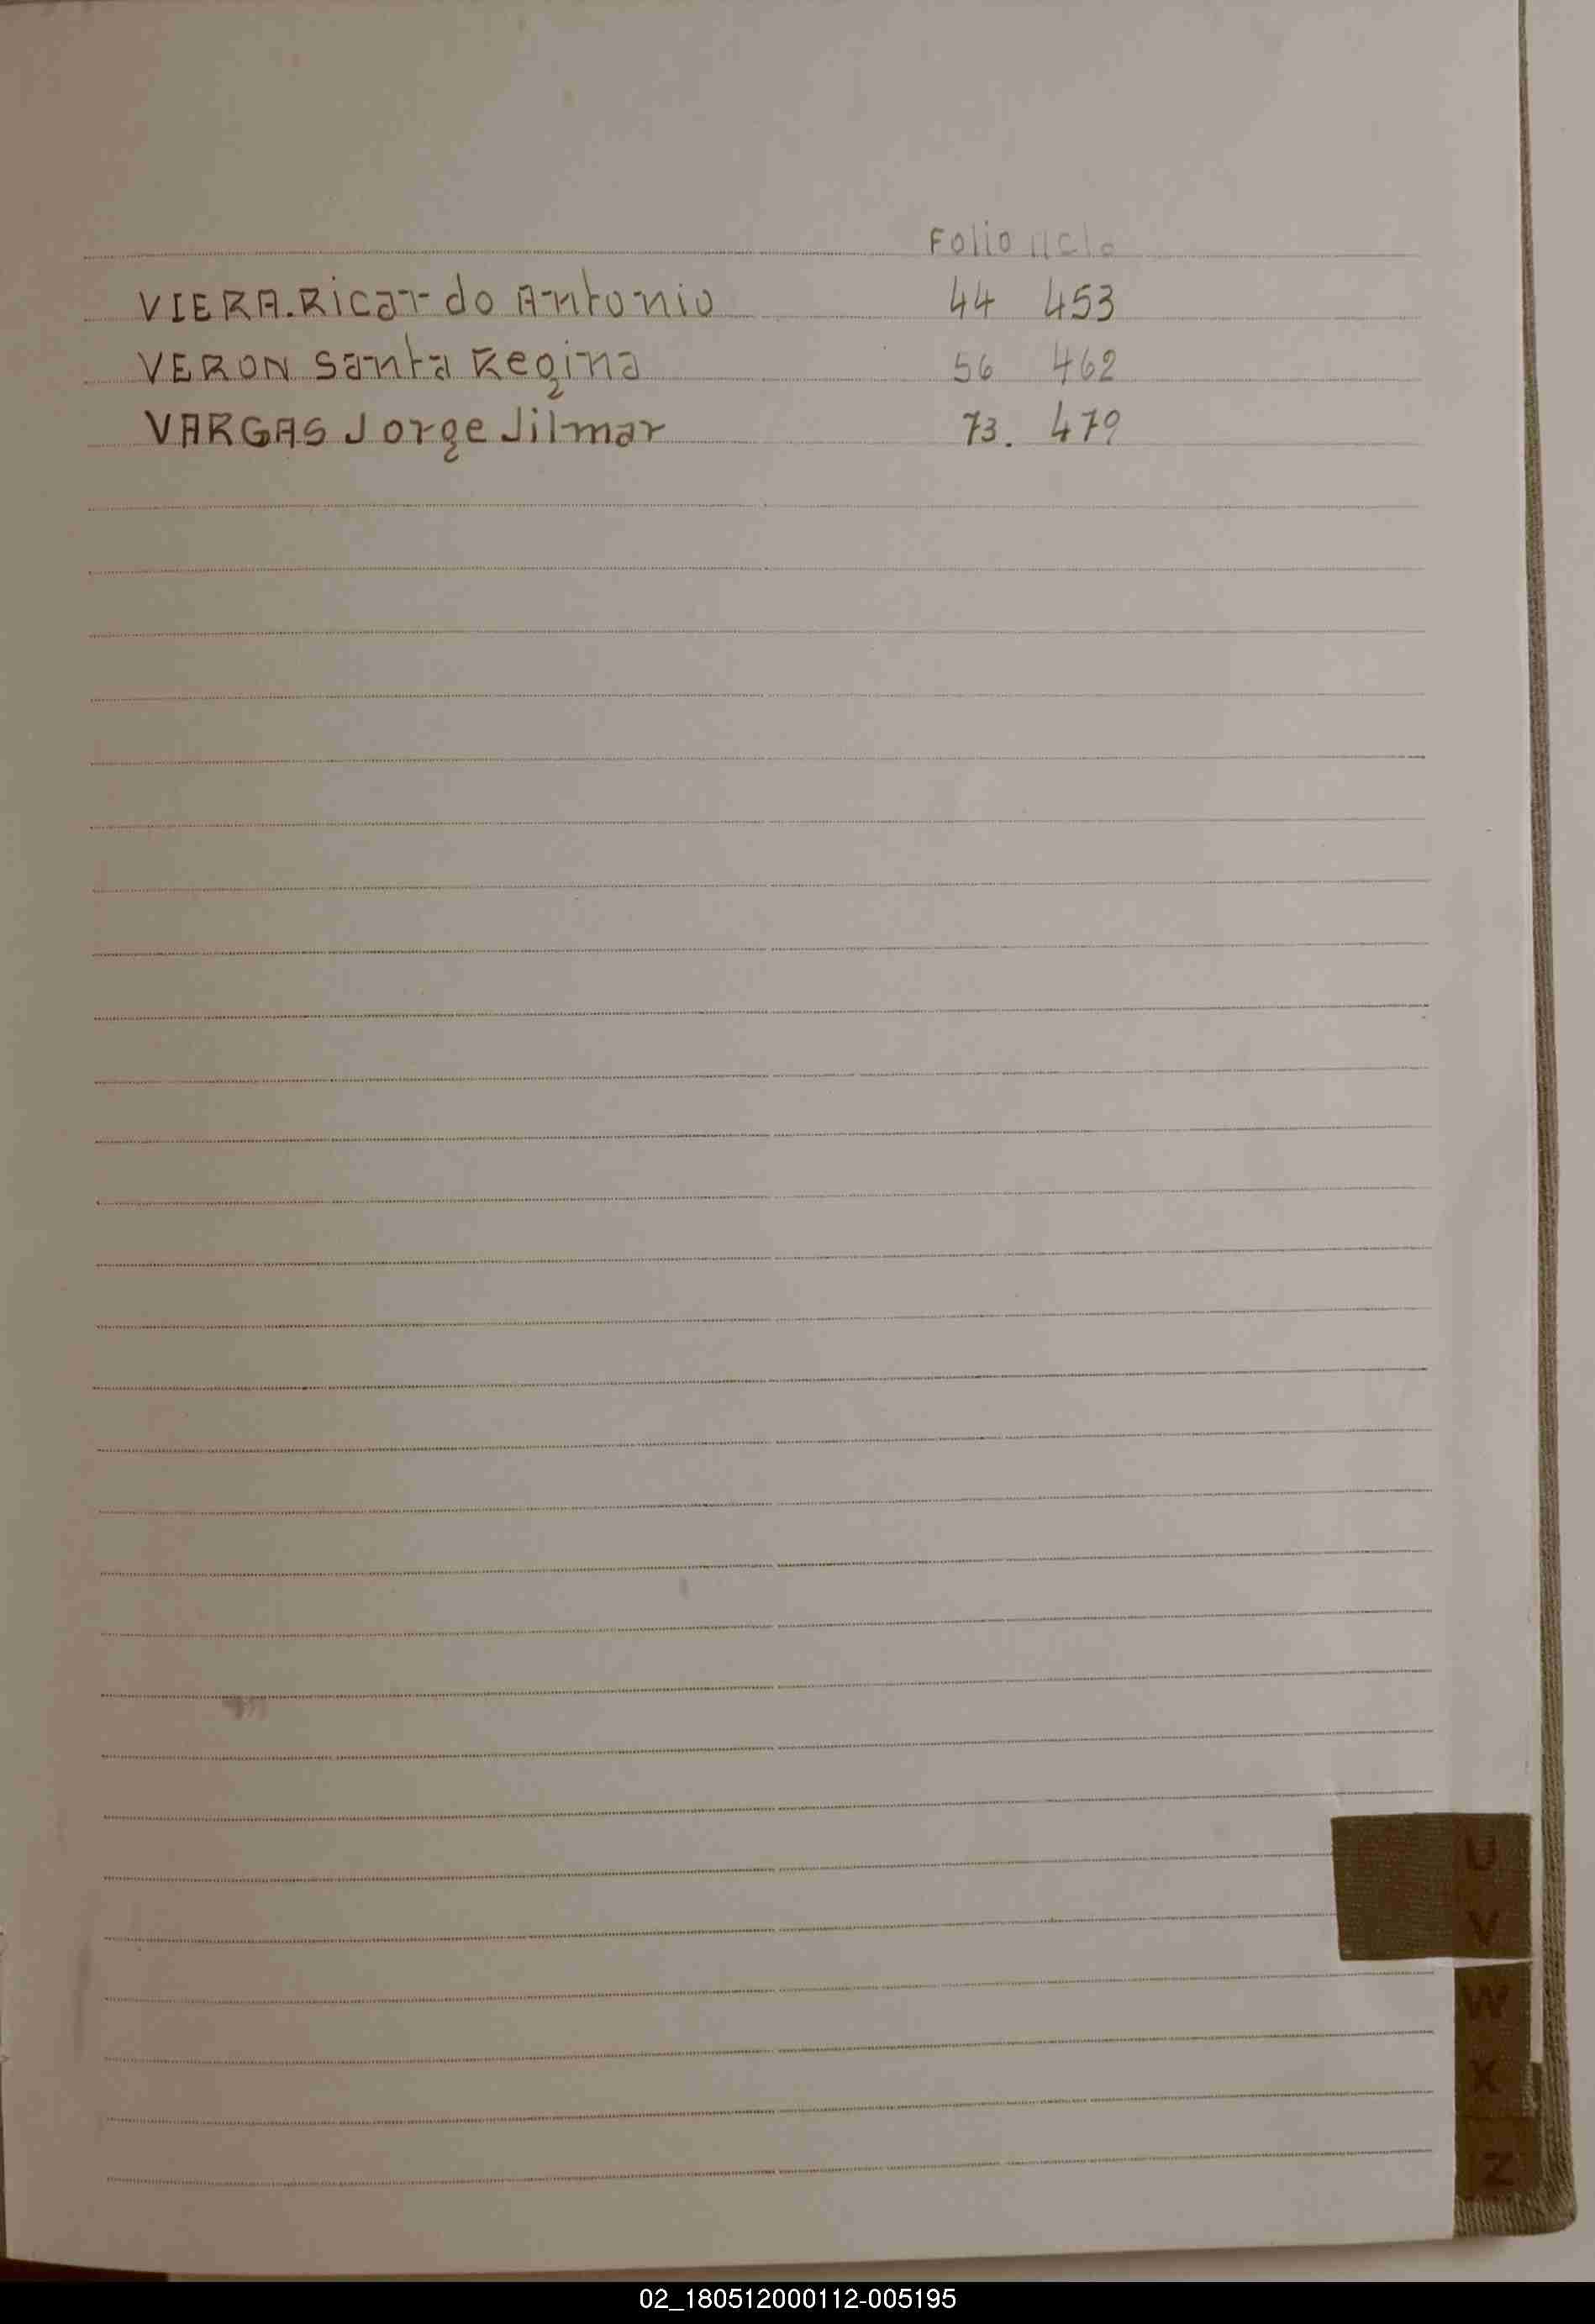 Folio
VIERA. Ricardo Antonio 44 453
VERON Santa Regina 56 462
VARGAS Jorge Jilmar 73. 479
U
V
W
X
Z
02_180512000112-005195